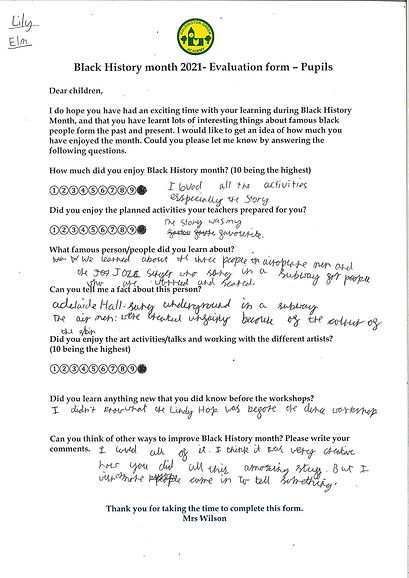 Lily
Elm
Black History month 2021- Evaluation form – Pupils
Dear children,
I do hope you have had an exciting time with your learning during Black History
Month, and that you have learnt lots of interesting things about famous black
people form the past and present. I would like to get an idea of how much you
have enjoyed the month. Could you please let me know by answering the
following questions.
How much did you enjoy Black History month? (10 being the highest)
①②③④⑤⑥⑦⑧⑨ I loved all the activities
especially the story
Did you enjoy the planned activities your teachers prepared for you?
①②③④⑤⑥⑦⑧⑨ The story was my
favourite.
What famous person/people did you learn about?
we learned about the three people in airoplane men and
the Jazz singer who sang in a subway for people
who are worried and scared.
Can you tell me a fact about this person?
adelaide Hall. sung underground in a subway
The air men: were treated unfairly because of the colour of
the skin
Did you enjoy the art activities/talks and working with the different artists?
(10 being the highest)
①②③④⑤⑥⑦⑧⑨
Did you learn anything new that you did know before the workshops?
I didn't know what the Lindy Hop was before the dance workshop
Can you think of other ways to improve Black History month? Please write your
comments. I loved all of it. I think it was very creative
how you did all this amazing stuff. But I
more people come in to tell something.
Thank you for taking the time to complete this form.
Mrs Wilson